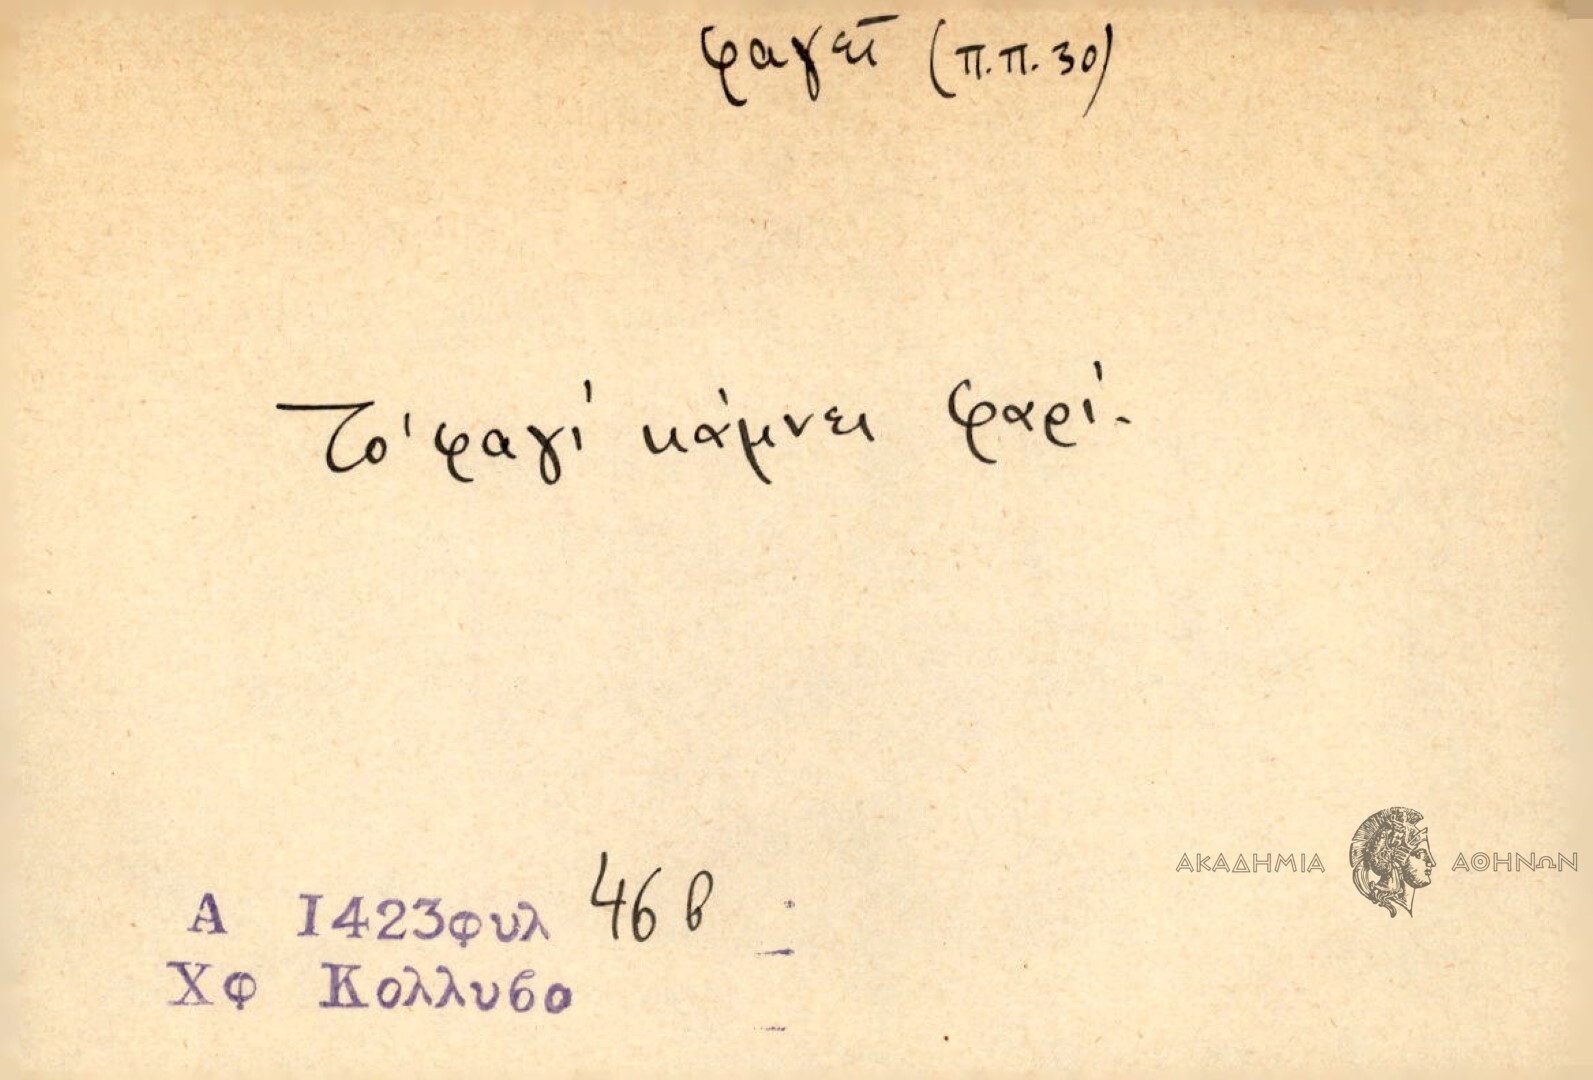 φαγεῖ (π.π. 30)
Τὸ φαγὶ κάμνει φαρί.
ΑΚΑΔΗΜΙΑ ΑΘΗΝΩΝ
Α 1423φυλ 46 β
Χφ Κολλυβο